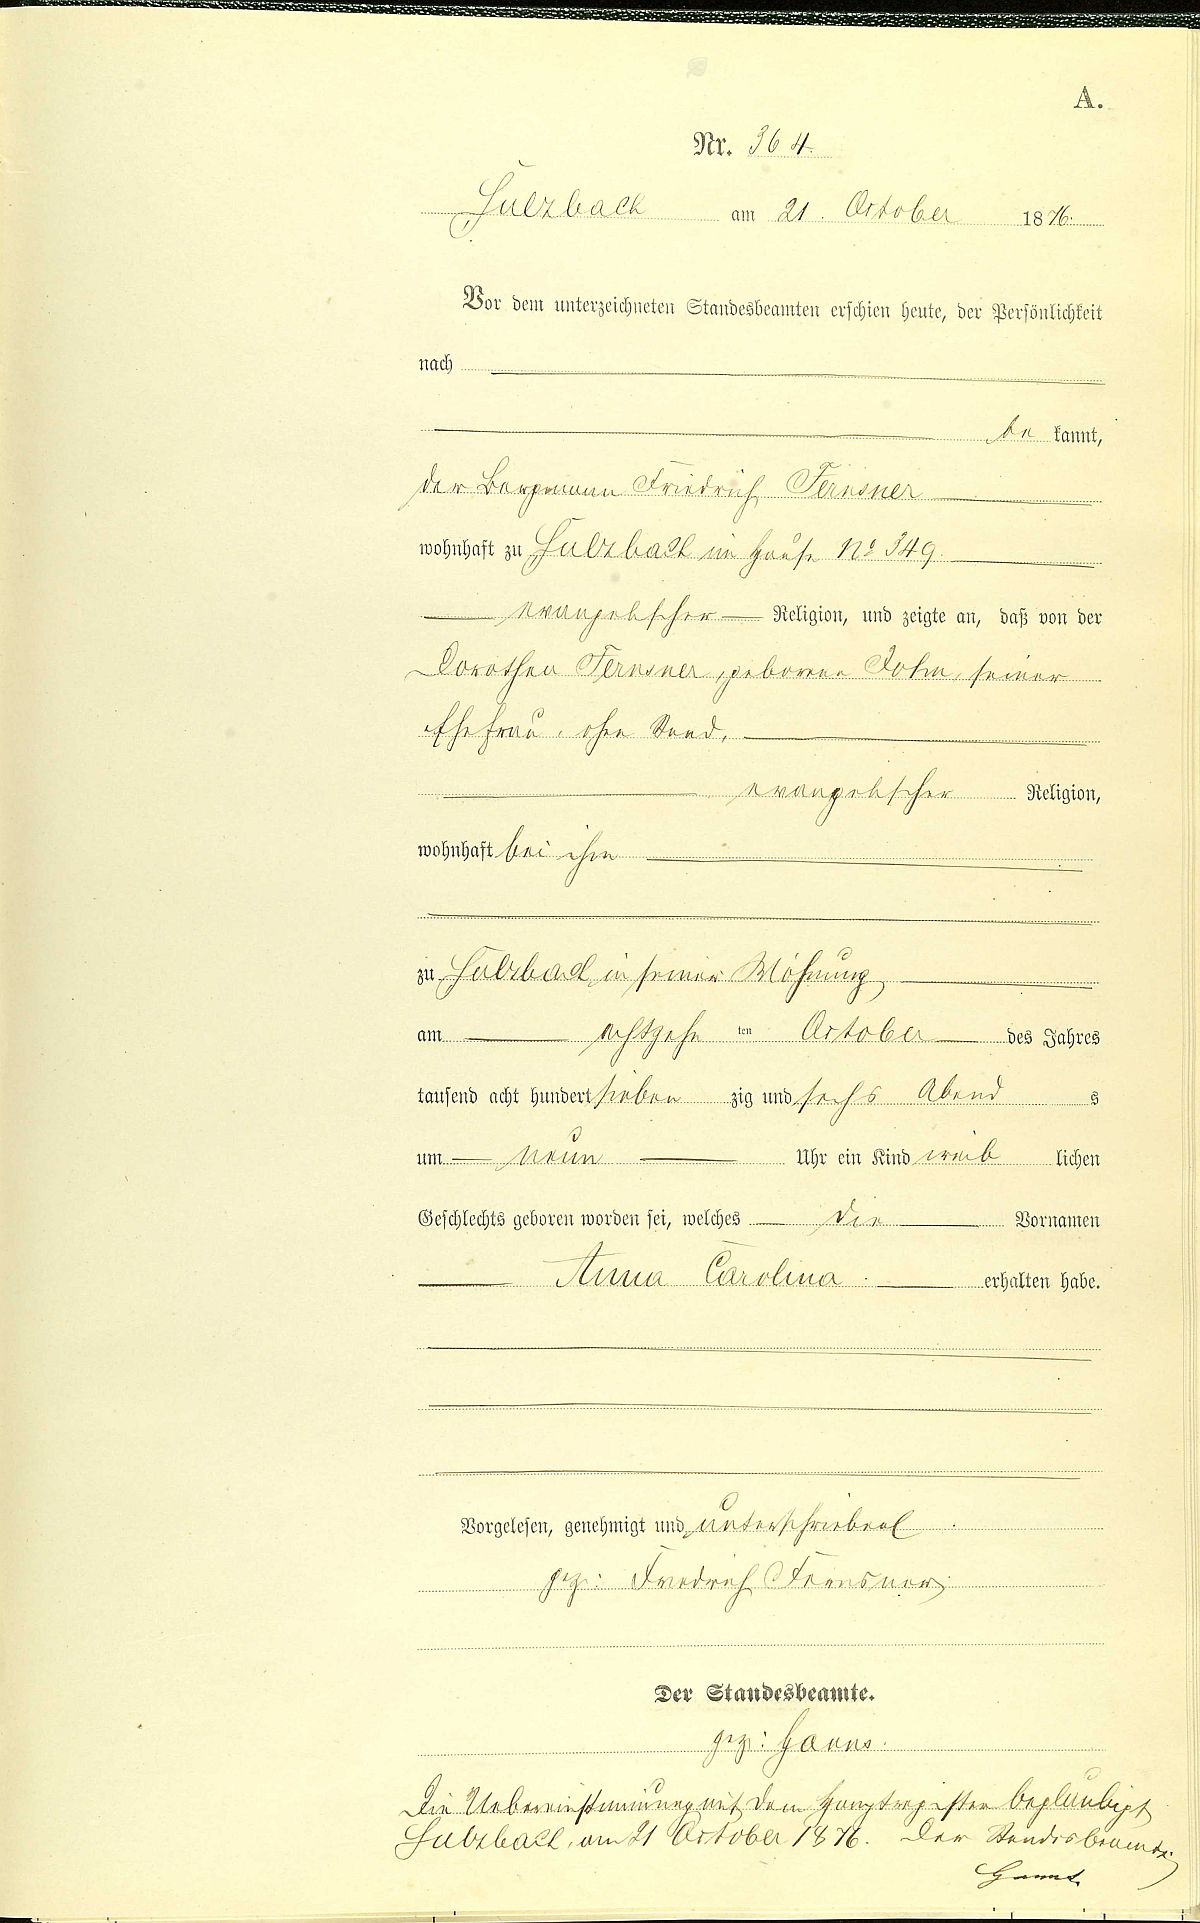 A.
Nr. 364
Sulzbach am 21. October 1876.
Vor dem unterzeichneten Standesbeamten erschien heute, der Persönlichkeit
nach
be kannt,
der Bergmann Friedrich Fernsner
wohnhaft zu Sulzbach im Hause No 349
evangelischer Religion, und zeigte an, daß von der
Dorothea Fernsner, geborene John, seiner
Ehefrau, ohne Stand,
evangelischer Religion,
wohnhaft bei ihm
zu Sulzbach in seiner Wohnung
am achtzehn ten October des Jahres
tausend acht hundert sieben zig und sechs Abend s
um neun Uhr ein Kind weib lichen
Geschlechts geboren worden sei, welches die Vornamen
Anna Carolina erhalten habe.
Vorgelesen, genehmigt und unterschrieben
gez: Friedrich Fernsner
Der Standesbeamte.
gez:
Die Uebereinstimmung mit dem Hauptregister beglaubigt
Sulzbach, am 21 October 1876. Der Standesbeamte.